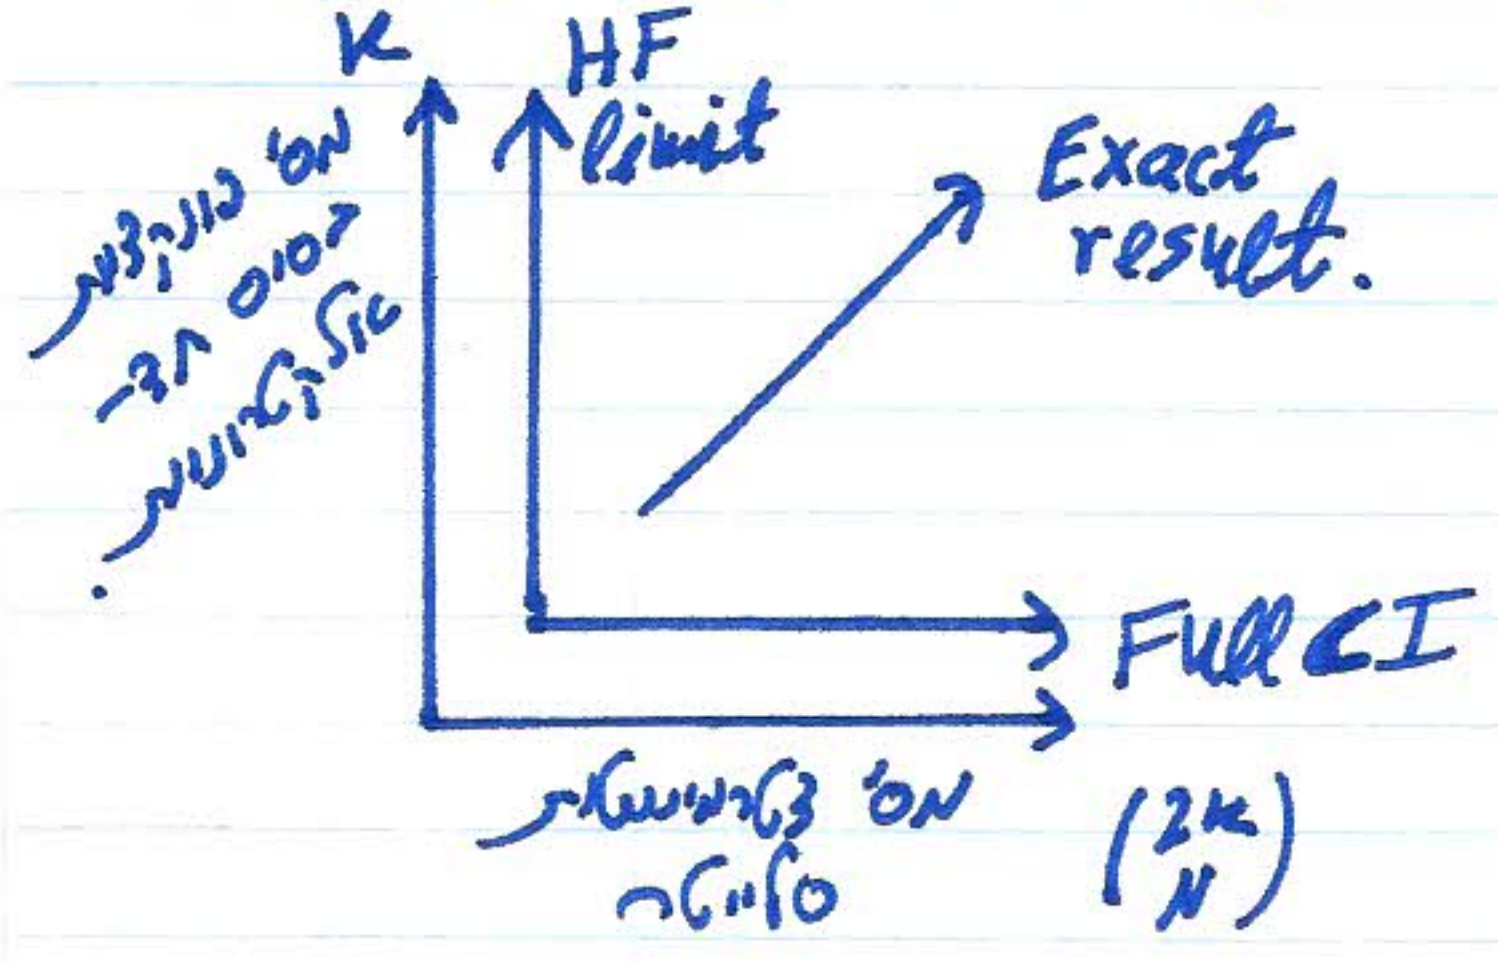 K
HF
limit
Exact
result.
מס' פונקציות
בסיס חד-
אלקטרוניות
.
Full CI
מס' דטרמיננטות
סלייטר
(2K
N)